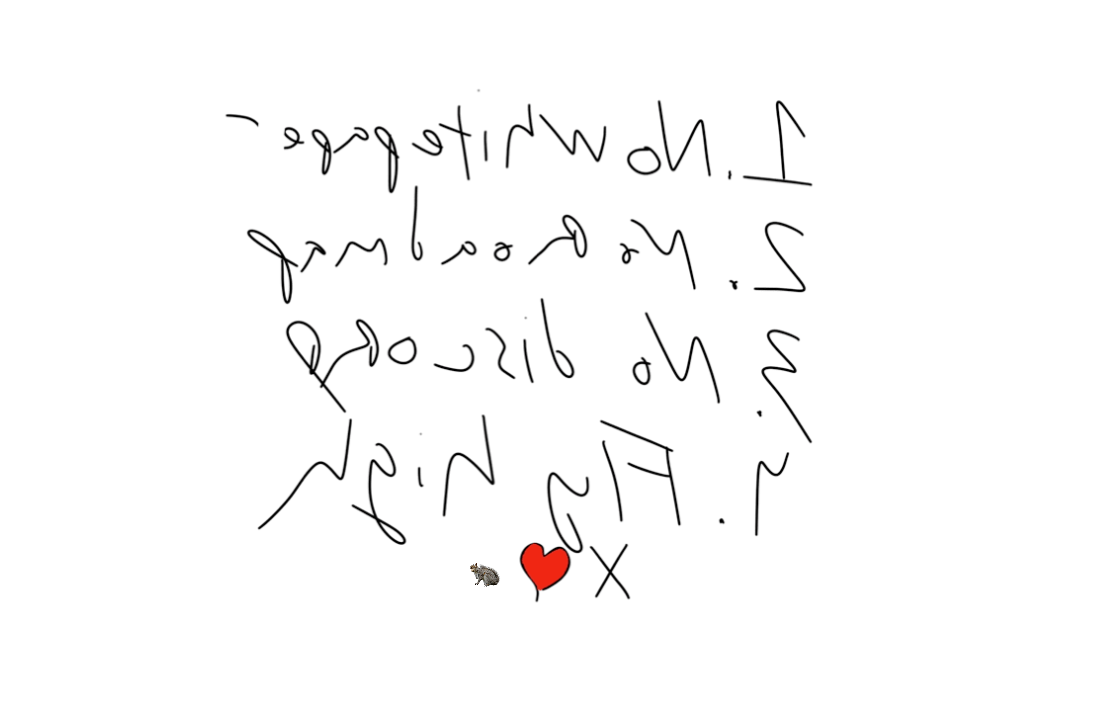 1. No whitepaper
2. No Roadmap
3. No discord
4. Fly high
X